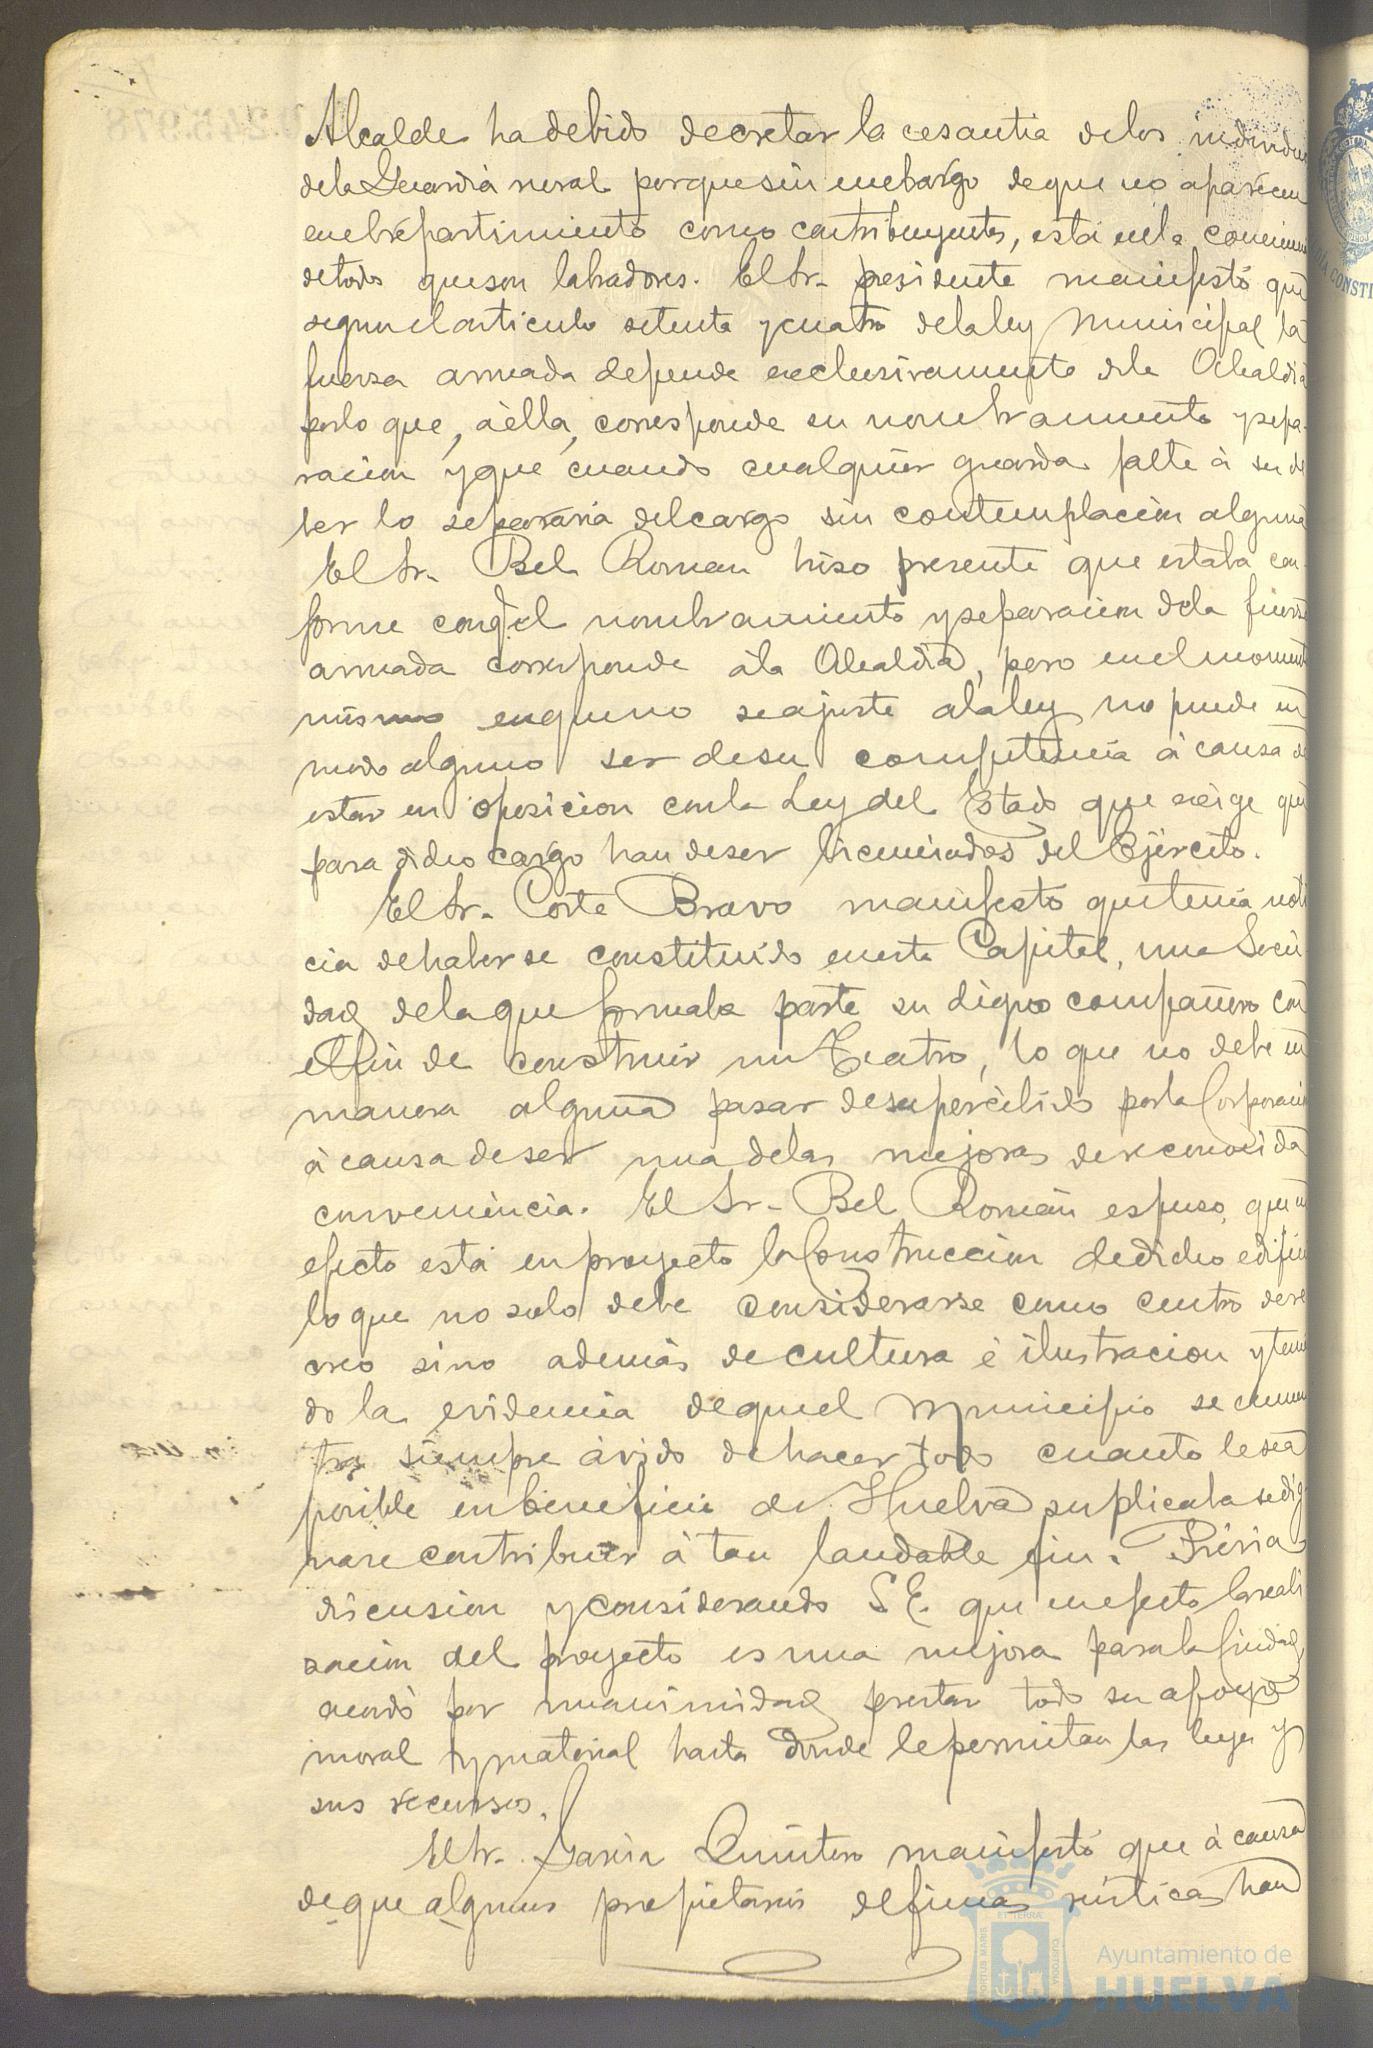 Alcalde ha debido decretar la cesantia de los individuos
de la Guardia rural porque sin embargo de que no aparecen
en el repartimiento como contribuyentes, está en la
de todos que son labradores. El Sr. presidente manifestó que
segun el articulo setenta y cuatro de la ley Municipal la
fuerza armada depende exclusivamente de la Alcaldia
por lo que, á ella, corresponde su nombramiento y sepa-
racion y que cuando cualquier guarda falte á su de
ber lo separaria del cargo sin contemplacion alguna
El Sr. Bel Roman hiso presente que estaba con-
forme con q.e el nombramiento y separacion de la fuerza
armada corresponde á la Alcaldia, pero en el momento
mismo en que no se ajuste a la ley no puede en
modo alguno ser de su competencia á causa de
estar en oposicion con la Ley del Estado que exige que
para dicho cargo han de ser licenciados del Ejército.
El Sr. Corte Bravo manifestó que tenia noti
cia de haberse constituido en esta Capital, una Socie
dad de la que formaba parte su digno compañero con
el fin de construir un Teatro, lo que no debe en
manera alguna pasar desapercibido por la Corporacion
á causa de ser una de las mejoras de reconocida
conveniencia. El Sr. Bel Román espuso, que en
efecto está en proyecto la Construccion de dicho edificio
lo que no solo debe considerarse como centro de re
creo sino además de cultura é ilustracion y tenien
do la evidencia de que el Municipio se encuen
tra siempre ávido de hacer todo cuanto le sea
posible en beneficio de Huelva suplicaba se dig
nase contribuir á tan laudable fin. Prévia
discusion y considerando S. E. que en efecto la reali
zacion del proyecto es una mejora para la Ciudad,
acordó por unanimidad prestar todo su apoyo
moral y material hasta donde le permitan las leyes y
sus recursos.
El Sr. Garcia Quintero manifestó que á causa
de que algunos propietarios de fincas rústicas han
Ayuntamiento de
HUELVA